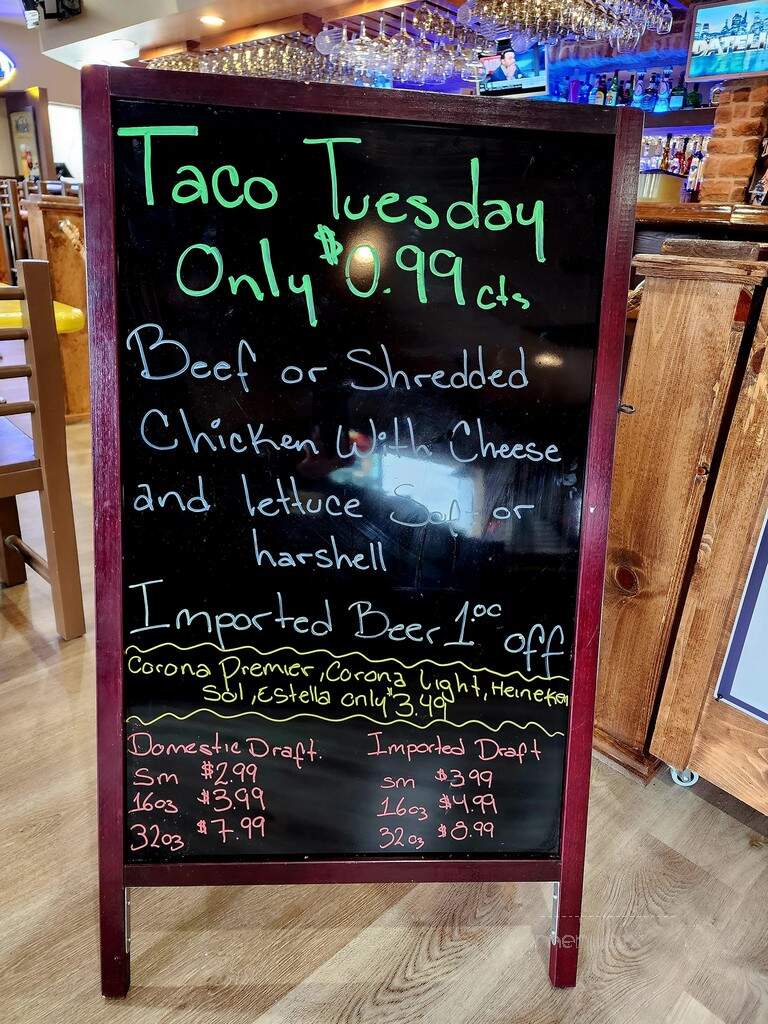 Taco Tuesday
Only $0.99 cts
Beef or Shredded
Chicken With Cheese
and lettuce Soft or
harshell
Imported Beer 1.00 off
Corona Premier, Corona light, Heineken
Sol, Estella only $3.49
Domestic Draft. Imported Draft
sm $2.99 sm $3.99
16oz $3.99 16oz $4.99
32oz $7.99 32oz $8.99